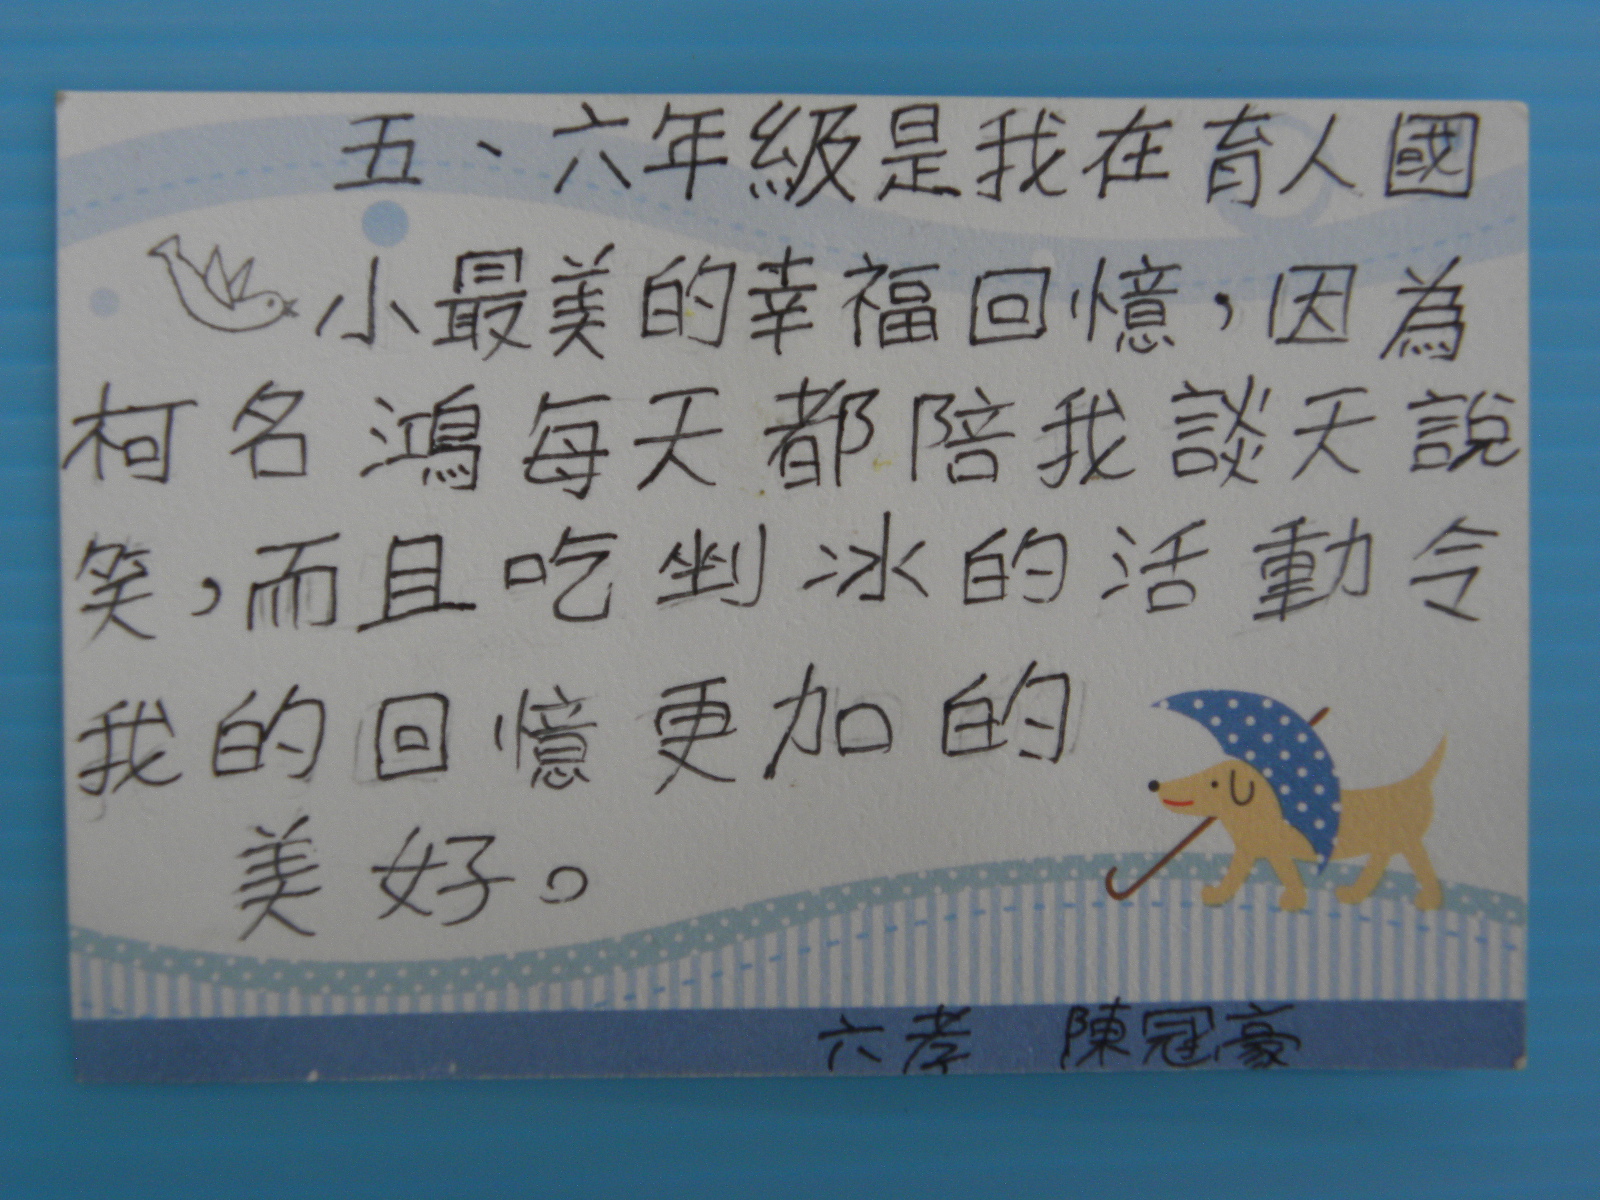 五、六年級是我在育人國
小最美的幸福回憶，因為
柯名鴻每天都陪我談天說
笑，而且吃剉冰的活動令
我的回憶更加的
美好。
六孝 陳冠豪